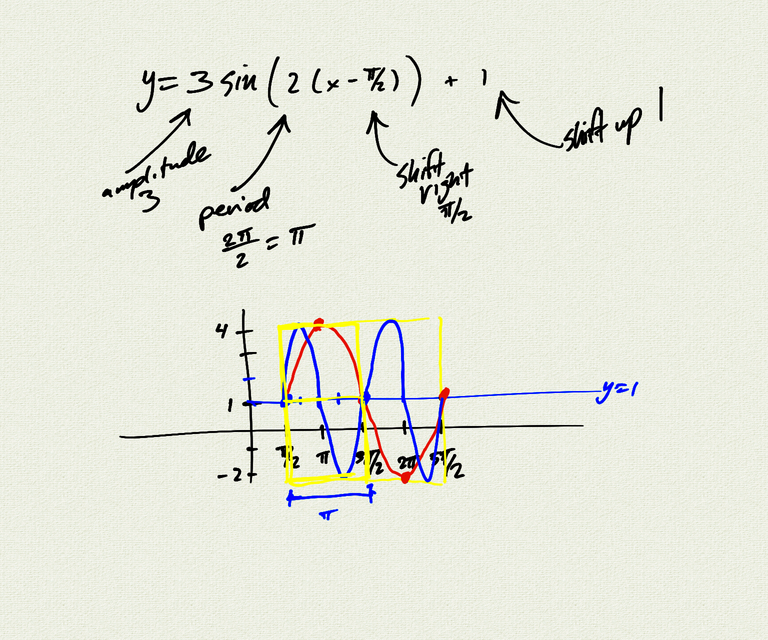 y = 3 sin ( 2 ( x - π/2 ) ) + 1
amplitude
3
period
2π/2 = π
shift
right
π/2
shift up 1
4
1
-2
y=1
π/2 π 3π/2 2π 5π/2
π